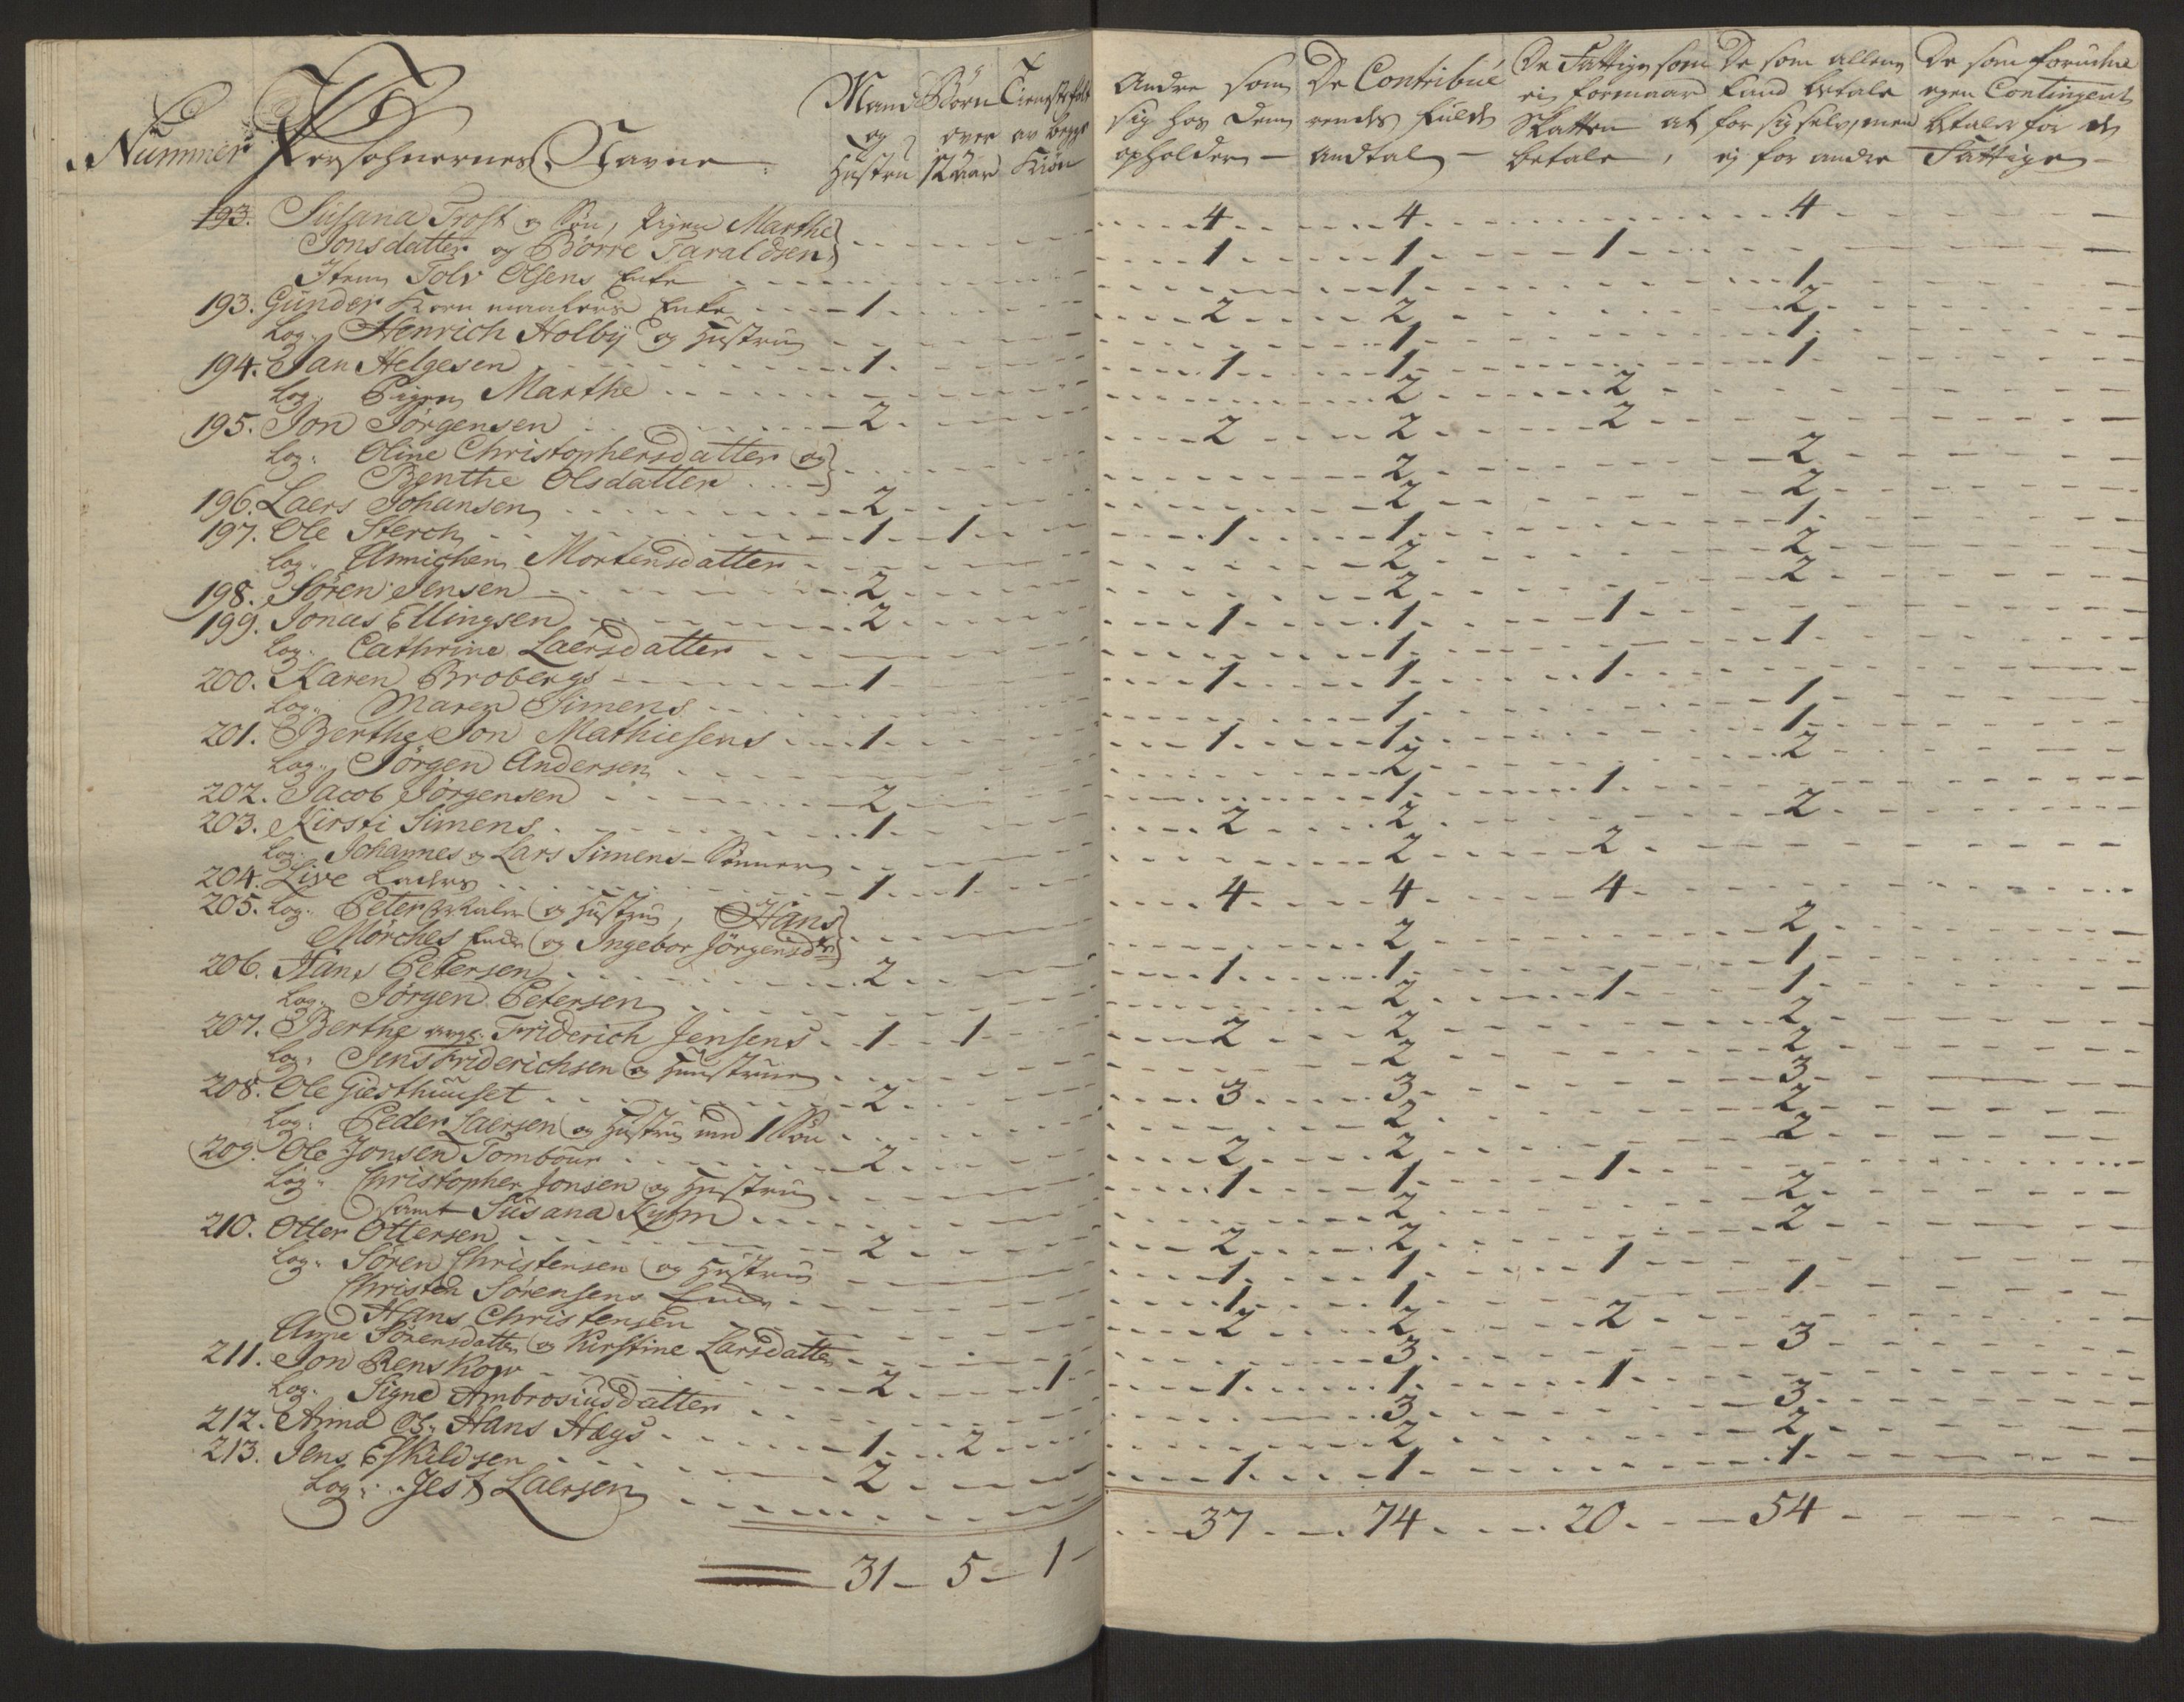 Nummer Persohnernes Navne Mand og Hustru Børn over 12 aar Tienestefolk av begge Kiøn
Andre som sig hos dem opholder De Contribuerendes fulde Andtal De Fattige som ei formaar Skatten at betale De som allene kand betale for sig selv, men ej for andre De som foruden egen Contingent betaler for de Fattige
193. Susana Trost og Søn, Pigen Marthe
Jonsdatter og Børre Taraldsen 4 4 4
Item Tolv Olsens Enke 1 1 1
193. Gunder Kornmaalers Enke 1 1 1
Log. Henrich Holbÿ og Hustru 2 2 2
194. Jan Helgesen 1 1 1
Log. Pigen Marthe 1 1 1
195. Jon Jørgensen 2 2 2
Log. Oline Christophersdatter og
Benthe Olsdatter 2 2 2
196. Laers Johansen 2 2 2
197. Ole Sterch 1 1 2 2
Log. Annichen Mortensdatter 1 1 1
198. Søren Jensen 2 2 2
199. Jonas Ellingsen 2 2 2
Log. Cathrine Laersdatter 1 1 1
200. Karen Brobergs 1 1 1
Log. Maren Simens 1 1 1
201. Berthe Jon Mathiesens 1 1 1
Log. Jørgen Andersen 1 1 1
202. Jacob Jørgensen 2 2 2
203. Kirsti Simens 1 1 1
Log. Johannes og Lars Simens Sønner 2 2 2
204. Live Laders 1 1 2 2
205. Log. Peter Maler og Hustru, Hans
Mørches Enke og Ingebor Jørgensdtr 4 4 4
206. Hans Petersen 2 2 2
Log. Jørgen Petersen 1 1 1
207. Berthe Friderich Jensens 1 1 2 1 1
Log. Jens Friderichsen og Hustrue 2 2 2
208. Ole Giesthuuset 2 2 2
Log. Peder Laersen og Hustru med 1 Søn 3 3 3
209. Ole Jonsen Tombour 2 2 2
Log. Christopher Jonsen og Hustru 2 2 2
samt Susana Kymn 1 1 1
210. Otter Ottersen 2 2 2
Log. Søren Christensen og Hustru 2 2 2
Christen Sørensens Enke 1 1 1
Hans Christensen 1 1 1
Anne Sørensdatter og Kirstine Larsdatter 2 2 2
211. Jon Renskow 2 1 3 3
Log. Signe Ambrosiusdatter 1 1 1
212. Anna Hans Hags 1 2 3 3
213. Jens Eskildsen 2 2 2
Log. Jest Laersen 1 1 1
31 5 1 37 74 20 54